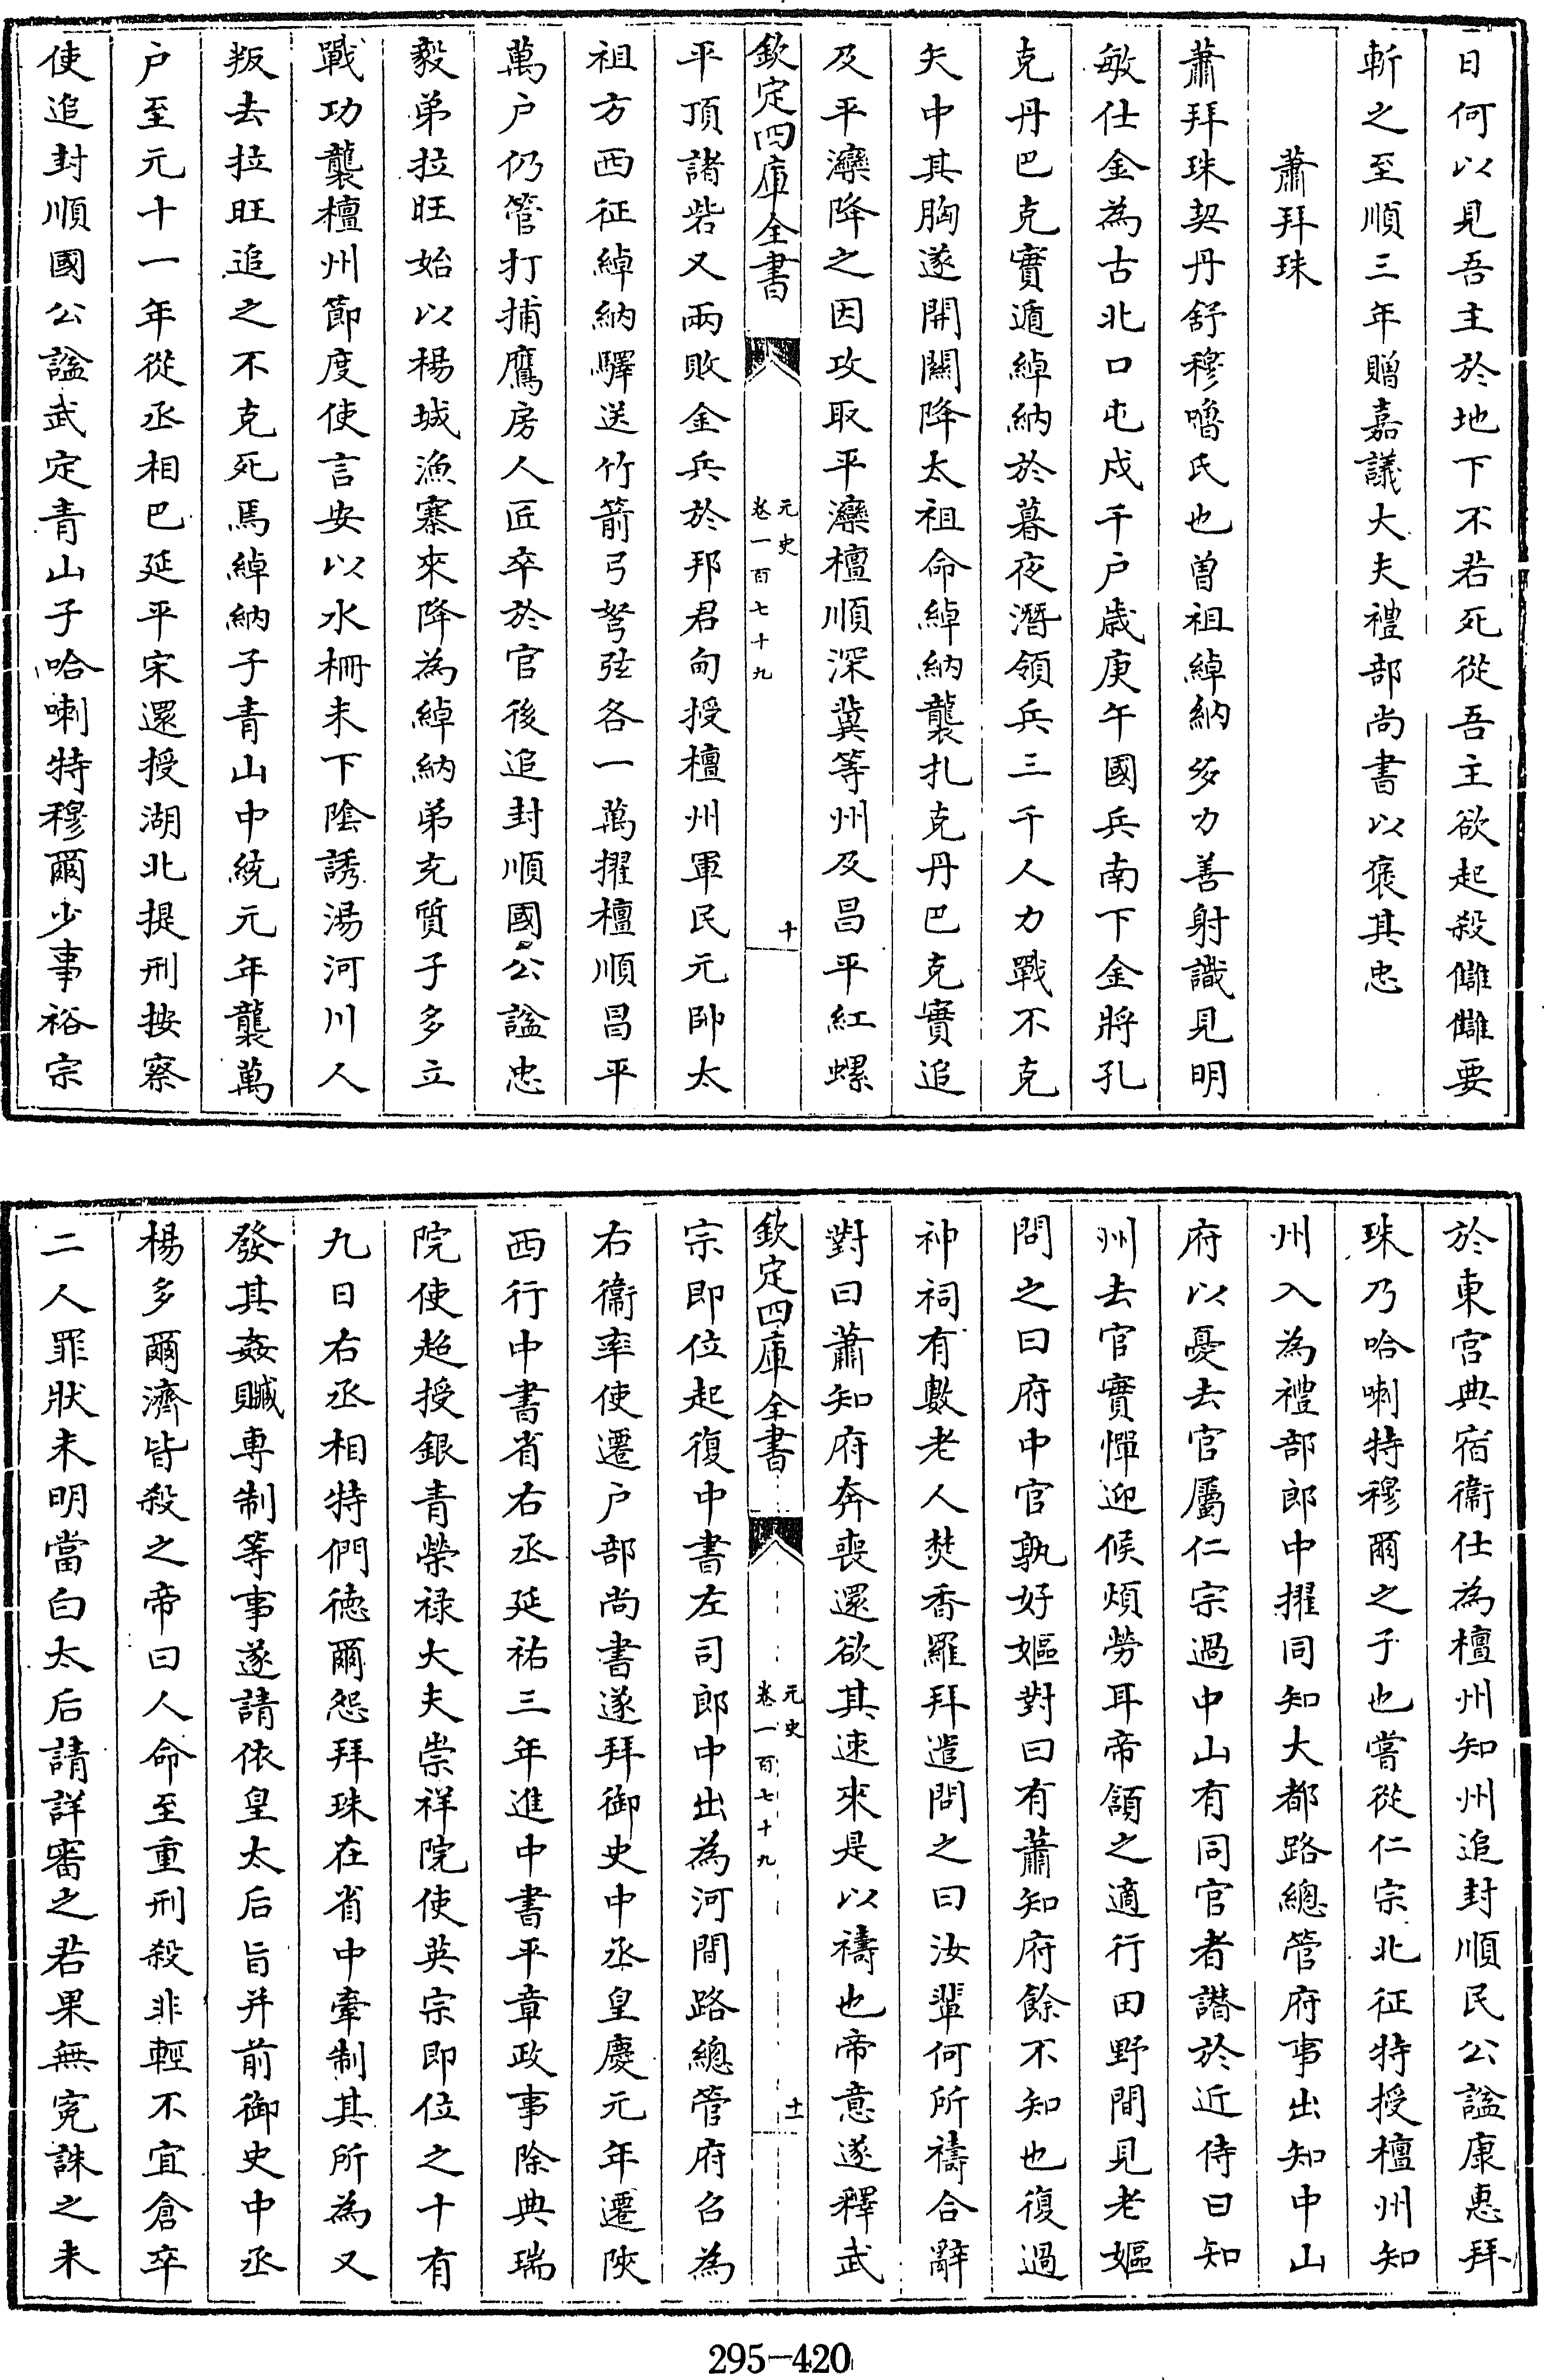 日何以見吾主於地下不若死從吾主欲起殺讎讎要
斬之至順三年贈嘉議大夫禮部尚書以褒其忠
蕭拜珠
蕭拜珠契丹舒穆嚕氏也曽祖綽納多力善射識見明
敏仕金為古北口屯戍千户歲庚午國兵南下金將孔
克丹巴克實遁綽納於暮夜潛領兵三千人力戰不克
矢中其胸遂開關降太祖命綽納襲扎克丹巴克實追
及平灤降之因攻取平灤檀順深冀等州及昌平紅螺
欽定四庫全書
元史
卷一百七十九
十
平頂諸砦又兩敗金兵於邦君甸授檀州軍民元帥太
祖方西征綽納驛送竹箭弓弩弦各一萬擢檀順昌平
萬户仍管打捕鷹房人匠卒於官後追封順國公諡忠
毅弟拉旺始以楊城漁寨來降為綽納弟充質子多立
戰功襲檀州節度使言安以水柵未下陰誘湯河川人
叛去拉旺追之不克死焉綽納子青山中統元年襲萬
户至元十一年從丞相巴延平宋還授湖北提刑按察
使追封順國公諡武定青山子哈喇特穆爾少事裕宗
於東宫典宿衞仕為檀州知州追封順民公諡康惠拜
珠乃哈喇特穆爾之子也嘗從仁宗北征特授檀州知
州入為禮部郎中擢同知大都路總管府事出知中山
府以憂去官屬仁宗過中山有同官者譖於近侍曰知
州去官實憚迎候煩勞耳帝頷之適行田野間見老嫗
問之曰府中官孰好嫗對曰有蕭知府餘不知也復過
神祠有數老人焚香羅拜遣問之曰汝輩何所禱合辭
對曰蕭知府奔喪還欲其速來是以禱也帝意遂釋武
欽定四庫全書
元史
卷一百七十九
十一
宗即位起復中書左司郎中出為河間路總管府召為
右衞率使遷户部尚書遂拜御史中丞皇慶元年遷陜
西行中書省右丞延祐三年進中書平章政事除典瑞
院使超授銀青榮禄大夫崇祥院使英宗即位之十有
九日右丞相特們德爾怨拜珠在省中牽制其所為又
發其姦贓専制等事遂請依皇太后旨并前御史中丞
楊多爾濟皆殺之帝曰人命至重刑殺非輕不宜倉卒
二人罪狀未明當白太后請詳審之若果無寃誅之未
295-420